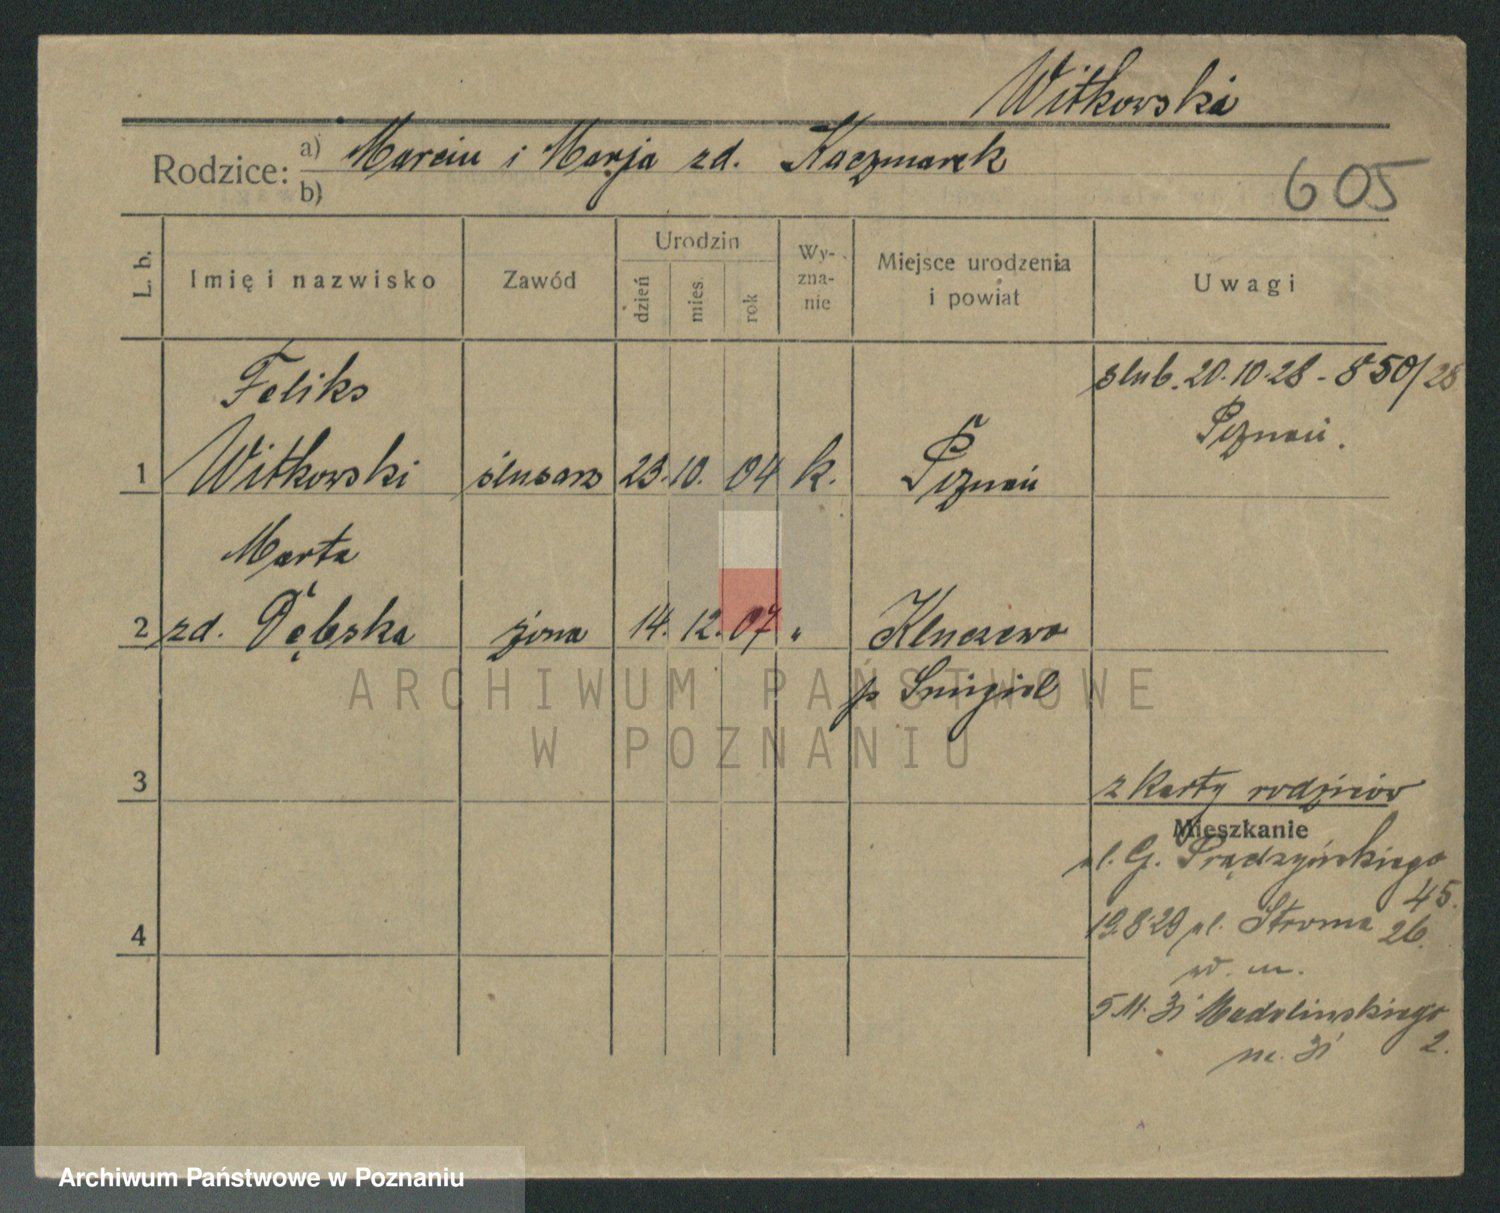 Witkowski
Rodzice: a) Marcin i Marja zd. Kaczmarek
b)
605
L. b. Imię i nazwisko Zawód Urodzin dzień mies. rok Wy-zna-nie Miejsce urodzenia i powiat Uwagi
Feliks
ślub. 20.10.28 - 850/28
Poznań.
1 Witkowski ślusarz 23. 10. 04 k. Poznań
Marta
2 zd. Dębska żona 14. 12. 07 " Kluczewo
p Śmigiel
ARCHIWUM PAŃSTWOWE
W POZNANIU
3
z karty rodziców
Mieszkanie
ul. G. Prądzyńskiego
45.
4
19.8.29 ul. Stroma 26.
w. m.
5.11.31 Madalińskiego
2.
Archiwum Państwowe w Poznaniu